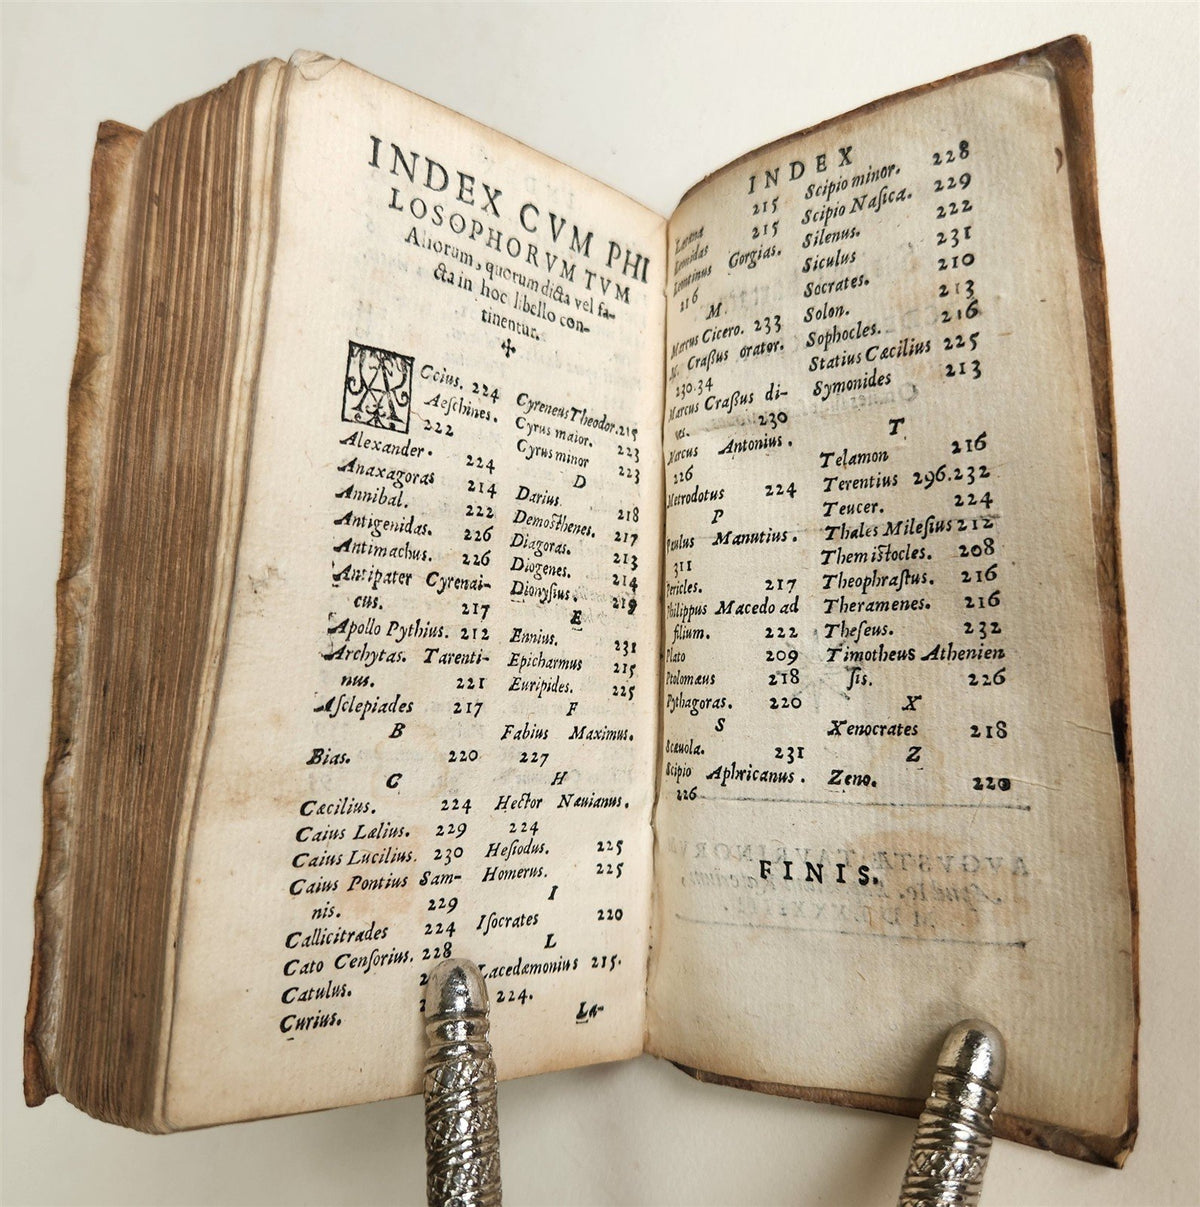 INDEX CVM PHI
LOSOPHORVM TVM
Aliorum, quorum dicta vel fa-
cta in hoc libello con-
tinentur.
✣
ACcius. 224
Aeſchines.
222
Alexander.
224
Anaxagoras
214
Annibal.
222
Antigenidas.
226
Antimachus.
226
Antipater Cyrenai-
cus. 217
Apollo Pythius. 212
Archytas. Tarenti-
nus. 221
Aſclepiades 217
B
Bias. 220
C
Cæcilius. 224
Caius Lælius. 229
Caius Lucilius. 230
Caius Pontius Sam-
nis. 229
Callicitrades 224
Cato Cenſorius. 228
Catulus.
Curius.
Cyreneus Theodor. 215
Cyrus maior. 223
Cyrus minor 223
D
Darius. 218
Demoſthenes. 217
Diagoras. 213
Diogenes. 214
Dionyſius. 219
E
Ennius. 231
Epicharmus 215
Euripides. 225
F
Fabius Maximus.
227
H
Hector Næuianus.
224
Heſiodus. 225
Homerus. 225
I
Iſocrates 220
L
Lacedæmonius 215.
224.
La-
INDEX
215
215
Leontinus Gorgias.
216
M
Marcus Cicero. 233
M. Craßus orator.
230.34
Marcus Craßus di-
ues. 230
Marcus Antonius.
226
Metrodotus 224
P
Paulus Manutius.
311
Pericles. 217
Philippus Macedo ad
filium. 222
Plato 209
Ptolomæus 218
Pythagoras. 220
S
Scæuola. 231
Scipio Aphricanus.
226
Scipio minor. 228
Scipio Naſica. 229
Silenus. 222
Siculus 231
Socrates. 210
Solon. 213
Sophocles. 216
Statius Cæcilius 225
Symonides 213
T
Telamon 216
Terentius 296.232
Teucer. 224
Thales Mileſius 212
Themiſtocles. 208
Theophraſtus. 216
Theramenes. 216
Theſeus. 232
Timotheus Athenien
ſis. 226
X
Xenocrates 218
Z
Zeno. 220
FINIS.